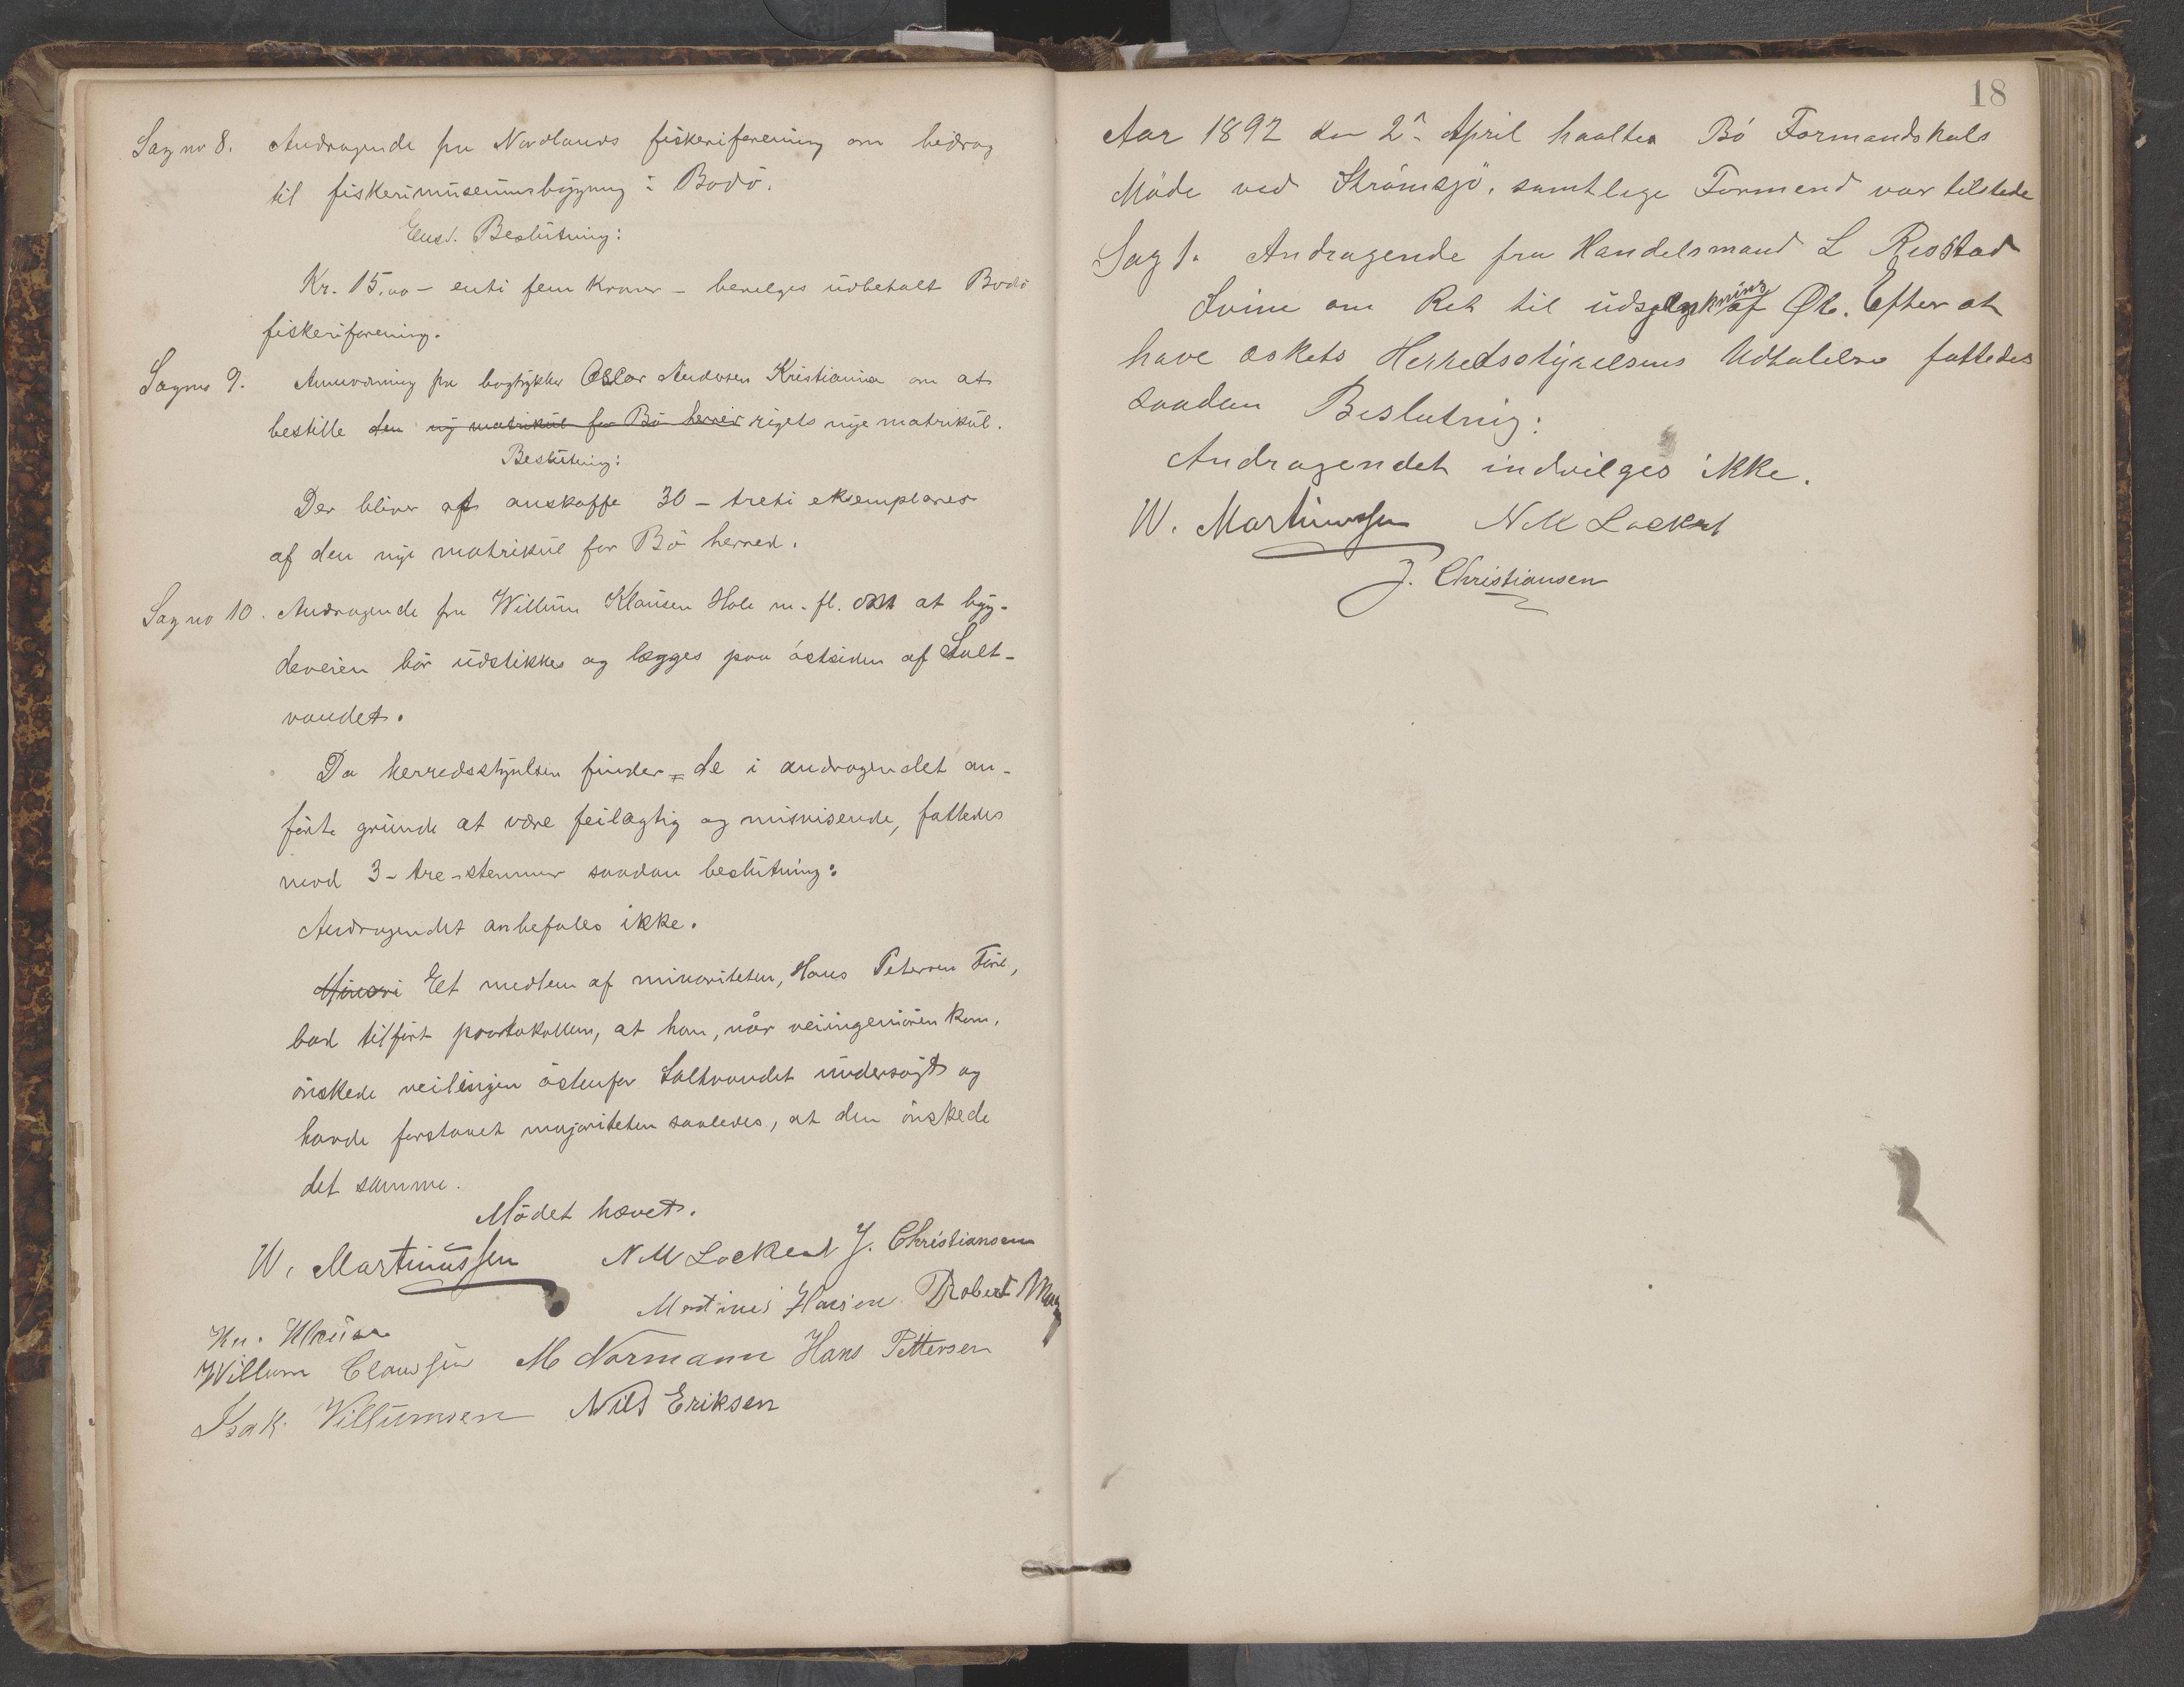 Sag no 8. Andragende fra Nordlands fiskeriforening om bidrag
til fiskerimuseumsbygning i Bodö.
Enst. Beslutning:
Kr. 15.00 - enti fem Kroner - bevilges udbetalt Bodö
fiskeriforening.
Sag no 9. Anmodning fra bogtrykker Oscar Andersen Kristiania om at
bestille den ny matrikul for Bö herred rigets nye matrikul.
Beslutning:
Der bliver at anskaffe 30 - treti eksemplarer
af den nye matrikul for Bö herred.
Sag no 10. Andragende fra Willum Klausen Hole m. fl. om at byg-
deveien bör udstikkes og lægges paa östsiden af Salt-
vandet.
Da herredsstyrelsen finder de i andragendet an-
förte grunde at være feilagtig og misvisende, fattedes
mod 3 - tre - stemmer saadan beslutning:
Andragendet anbefales ikke.
Minori Et medlem af minoriteten, Hans Petersen
bad tilfört protokollen, at han, når veiingeniören kom,
önskede veilinjen östenfor Saltvandet undersögt og
havde forstaaet majoriteten saaledes, at den önskede
det samme.
Mödet hævet.
W. Martinussen N M Lockert J. Christiansen
Martines Hansen Robert
Willum Clausen M Normann Hans Pettersen
Isak Villumsen Nils Eriksen
18
Aar 1892 den 2n April holdtes Bö Formandskabs
Möde ved Strömsjö, samtlige Formend var tilstede
Sag 1. Andragende fra Handelsmand L Ristad
Svine om Ret til udskjenkning af Øl. Efter at
have æskets Herredsstyrelsens Udtalelse fattedes
saadan Beslutnig:
Andragendet indvilges ikke.
W. Martinussen N M Lockert
J. Christiansen